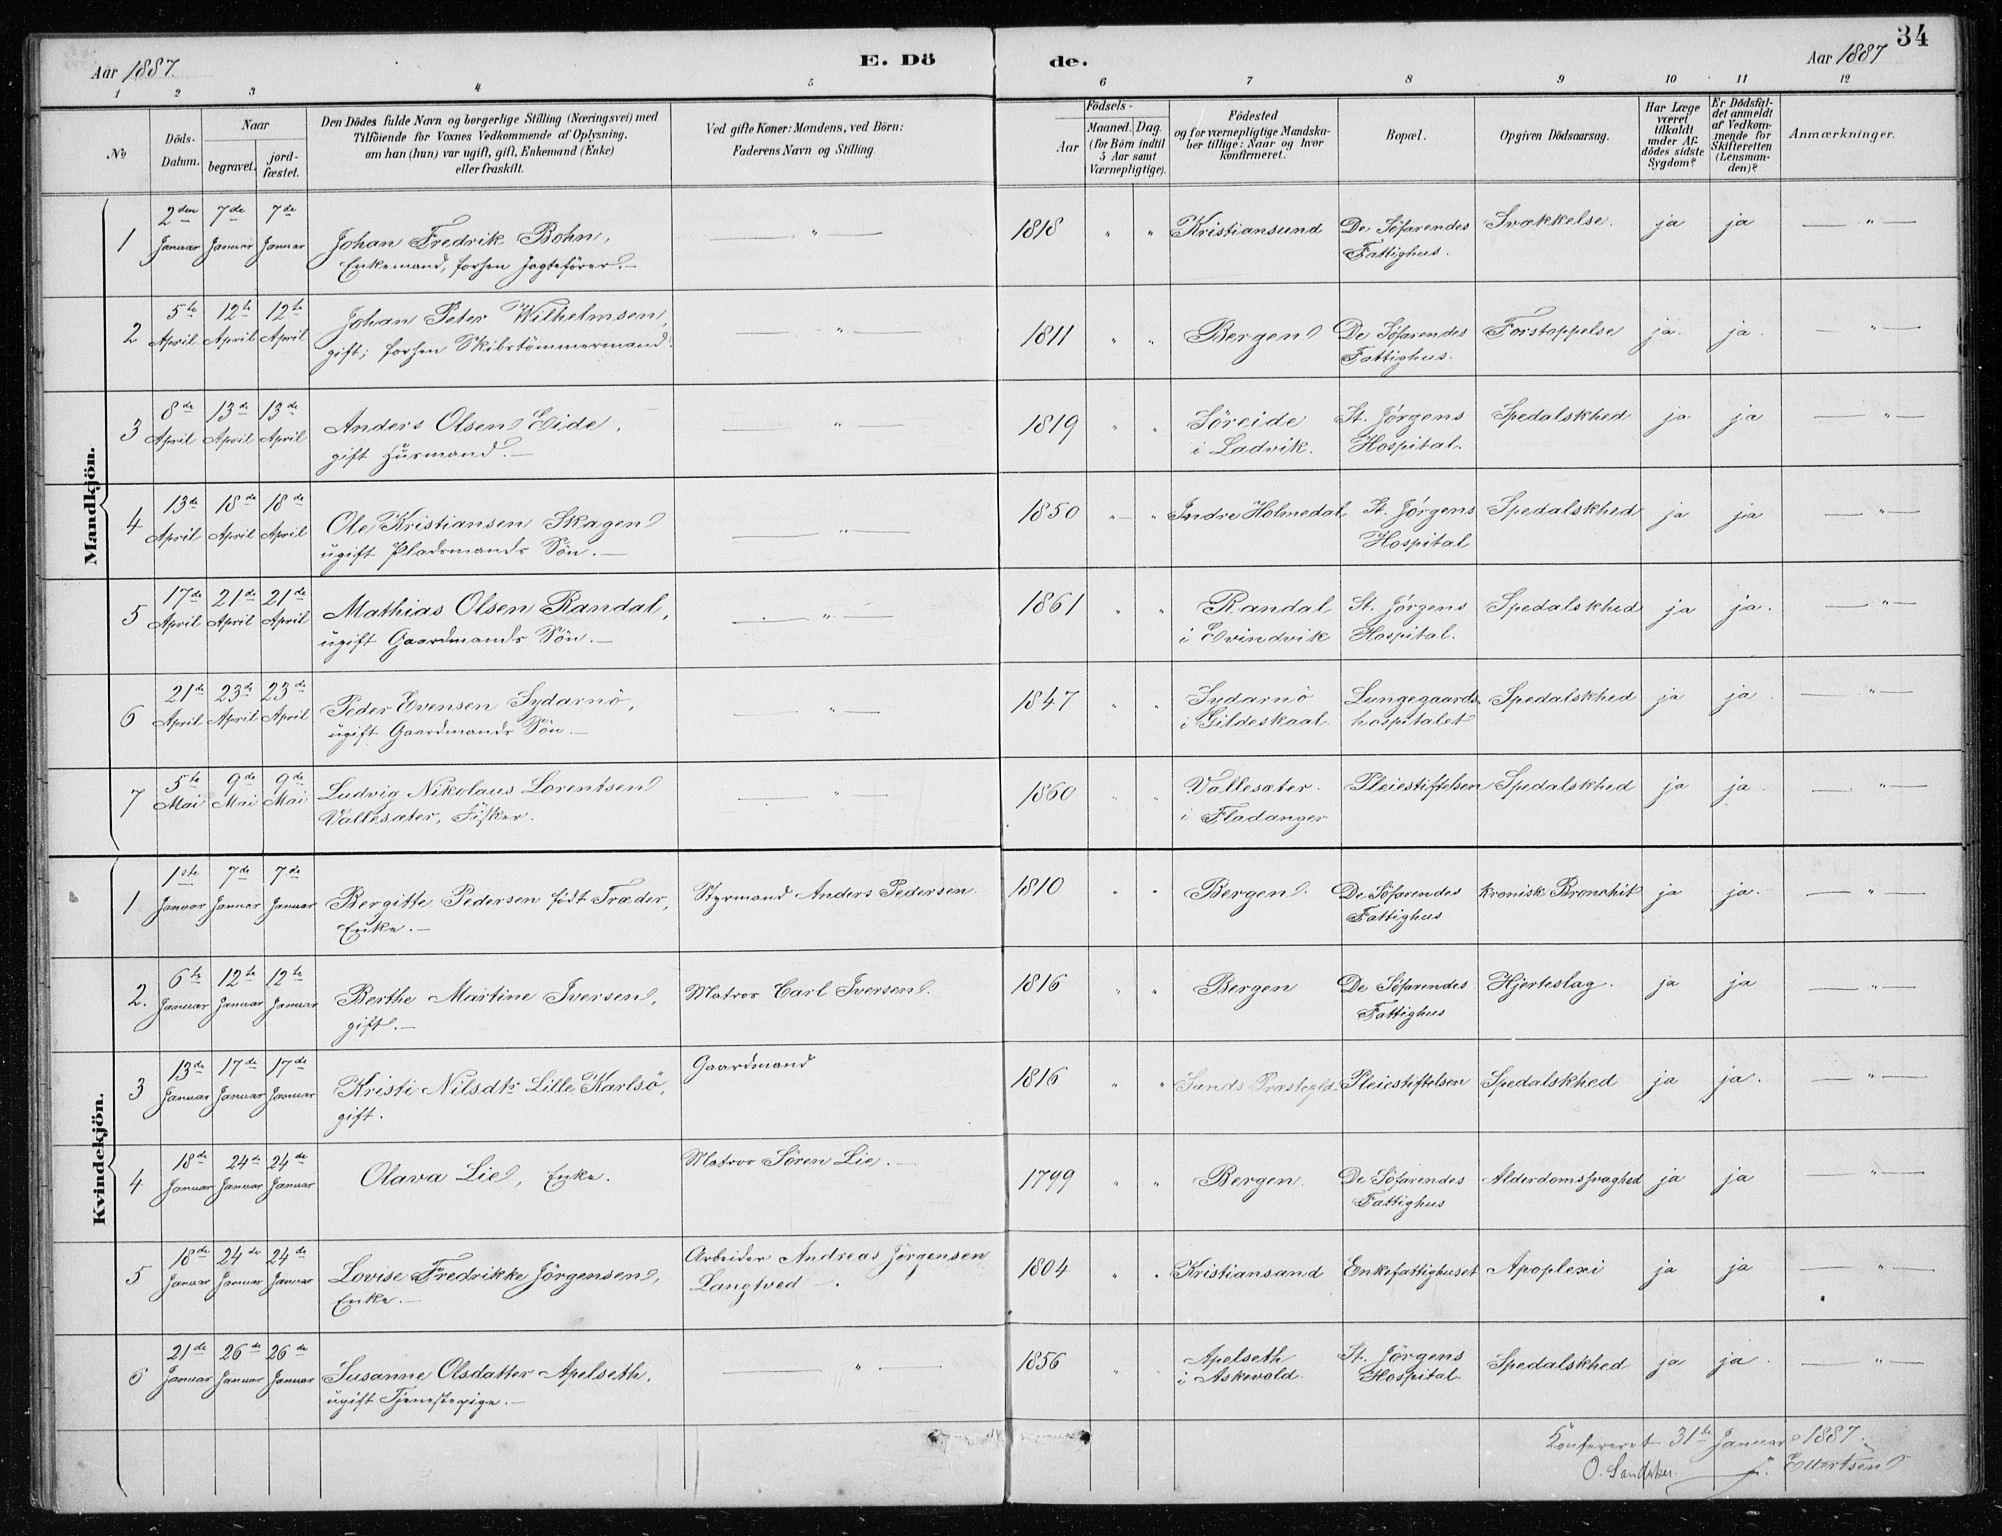 34
Aar 1887.
E. Dö
de.
Aar 1887
1 2 3 4 5 6 7 8 9 10 11 12
No
Döds-Datum.
Naar
begravet.
jord-fæstet.
Den Dödes fulde Navn og borgerlige Stilling (Næringsvei) med
Tilföiende for Voxnes Vedkommende af Oplysning,
om han (hun) var ugift, gift, Enkemand (Enke)
eller fraskilt.
Ved gifte Koner: Mandens, ved Börn:
Faderens Navn og Stilling.
Födsels-
Aar
Maaned. Dag.
(for Börn indtil
5 Aar samt
Værnepligtige).
Födested
og for værnepligtige Mandska-
ber tillige: Naar og hvor
konfirmeret.
Bopæl.
Opgiven Dödsaarsag.
Har Læge
været
tilkaldt
under Af-
dödes sidste
Sygdom?
Er Dödsfal-
det anmeldt
af Vedkom-
mende for
Skifteretten
(Lensman-
den)?
Anmærkninger.
Mandkjön.
1 2den Januar 7de Januar 7de Januar Johan Fredrik Bohn, — " — 1818 " " Kristiansund De Söfarendes Svækkelse. ja ja — " —
Enkemand, forhen Jagtefører. — Fattighus.
2 5te April 12te April 12te April Johan Peter Wilhelmsen, — " — 1811 " " Bergen De Söfarendes Forstoppelse ja. ja. — " —
gift; forhen Skibstömmermand. Fattighus.
3 8de April 13de April 13de April Anders Olsen Eide, — " — 1819 " " Söreide St. Jørgens Spedalskhed ja ja — " —
gift Husmand. — i Ladvik. Hospital.
4 13de April 18de April 18de April Ole Kristiansen Skagen — " — 1850 " " Indre Holmedal St. Jørgens Spedalskhed ja ja — " —
ugift Pladsmands Sön. — Hospital
5 17de April 21de April 21de April Mathias Olsen Randal, — " — 1861 " " Randal St. Jørgens Spedalskhed ja ja. — " —
ugift Gaardmands Sön. — i Evindvik Hospital.
6 21de April 23de April 23de April Peder Evensen Sydarnö, — " — 1847 " " Sydarnö Lungegaards- Spedalskhed ja ja — " —
ugift Gaardmands Sön. — i Gildeskaal. hospitalet
7 5te Mai 9de Mai 9de Mai Ludvig Nikolaus Lorentsen — " — 1860 " " Vallesæter. Pleiestiftelsen Spedalskhed ja ja — " —
Vallesæter, Fisker. i Fladanger
Kvindekjön.
1 1ste Januar 7de Januar 7de Januar Bergitte Pedersen födt Træder, Styrmand Anders Pedersen. 1810 " " Bergen. De Söfarendes kronisk Bronchit ja ja. — " —
Enke. — Fattighus
2. 6te Januar 12te Januar 12te Januar Berthe Martine Iversen, Matros Carl Iversen. 1816 " " Bergen De Söfarendes Hjerteslag. ja ja — " —
gift. — Fattighus
3 13de Januar 17de Januar 17de Januar Kristi Nilsdtr Lille Karlsö, Gaardmand 1816 " " Sunds Præstegld. Pleiestiftelsen Spedalskhed ja ja. — " —
gift.
4 18de Januar 24de Januar 24de Januar Olava Lie, Enke. Matros Sören Lie. — 1799 " " Bergen. De Söfarendes Alderdomssvaghed ja ja — " —
Fattighus
5 18de Januar 24de Januar 24de Januar Lovise Fredrikke Jörgensen, Arbeider Andreas Jörgensen 1804 " " Kristiansand Enkefattighuset Apoplexi ja ja — " —
Enke. — Langtved.
6 21de Januar 26de Januar 26de Januar Susanne Olsdatter Apelseth, — " — 1856 " " Apelseth St. Jörgens Spedalskhed ja ja. — " —
ugift Tjenestepige. — i Askevold. Hospital.
Konfereret 31te Januar 1887.
O. Sandaker. J. Ellertsen